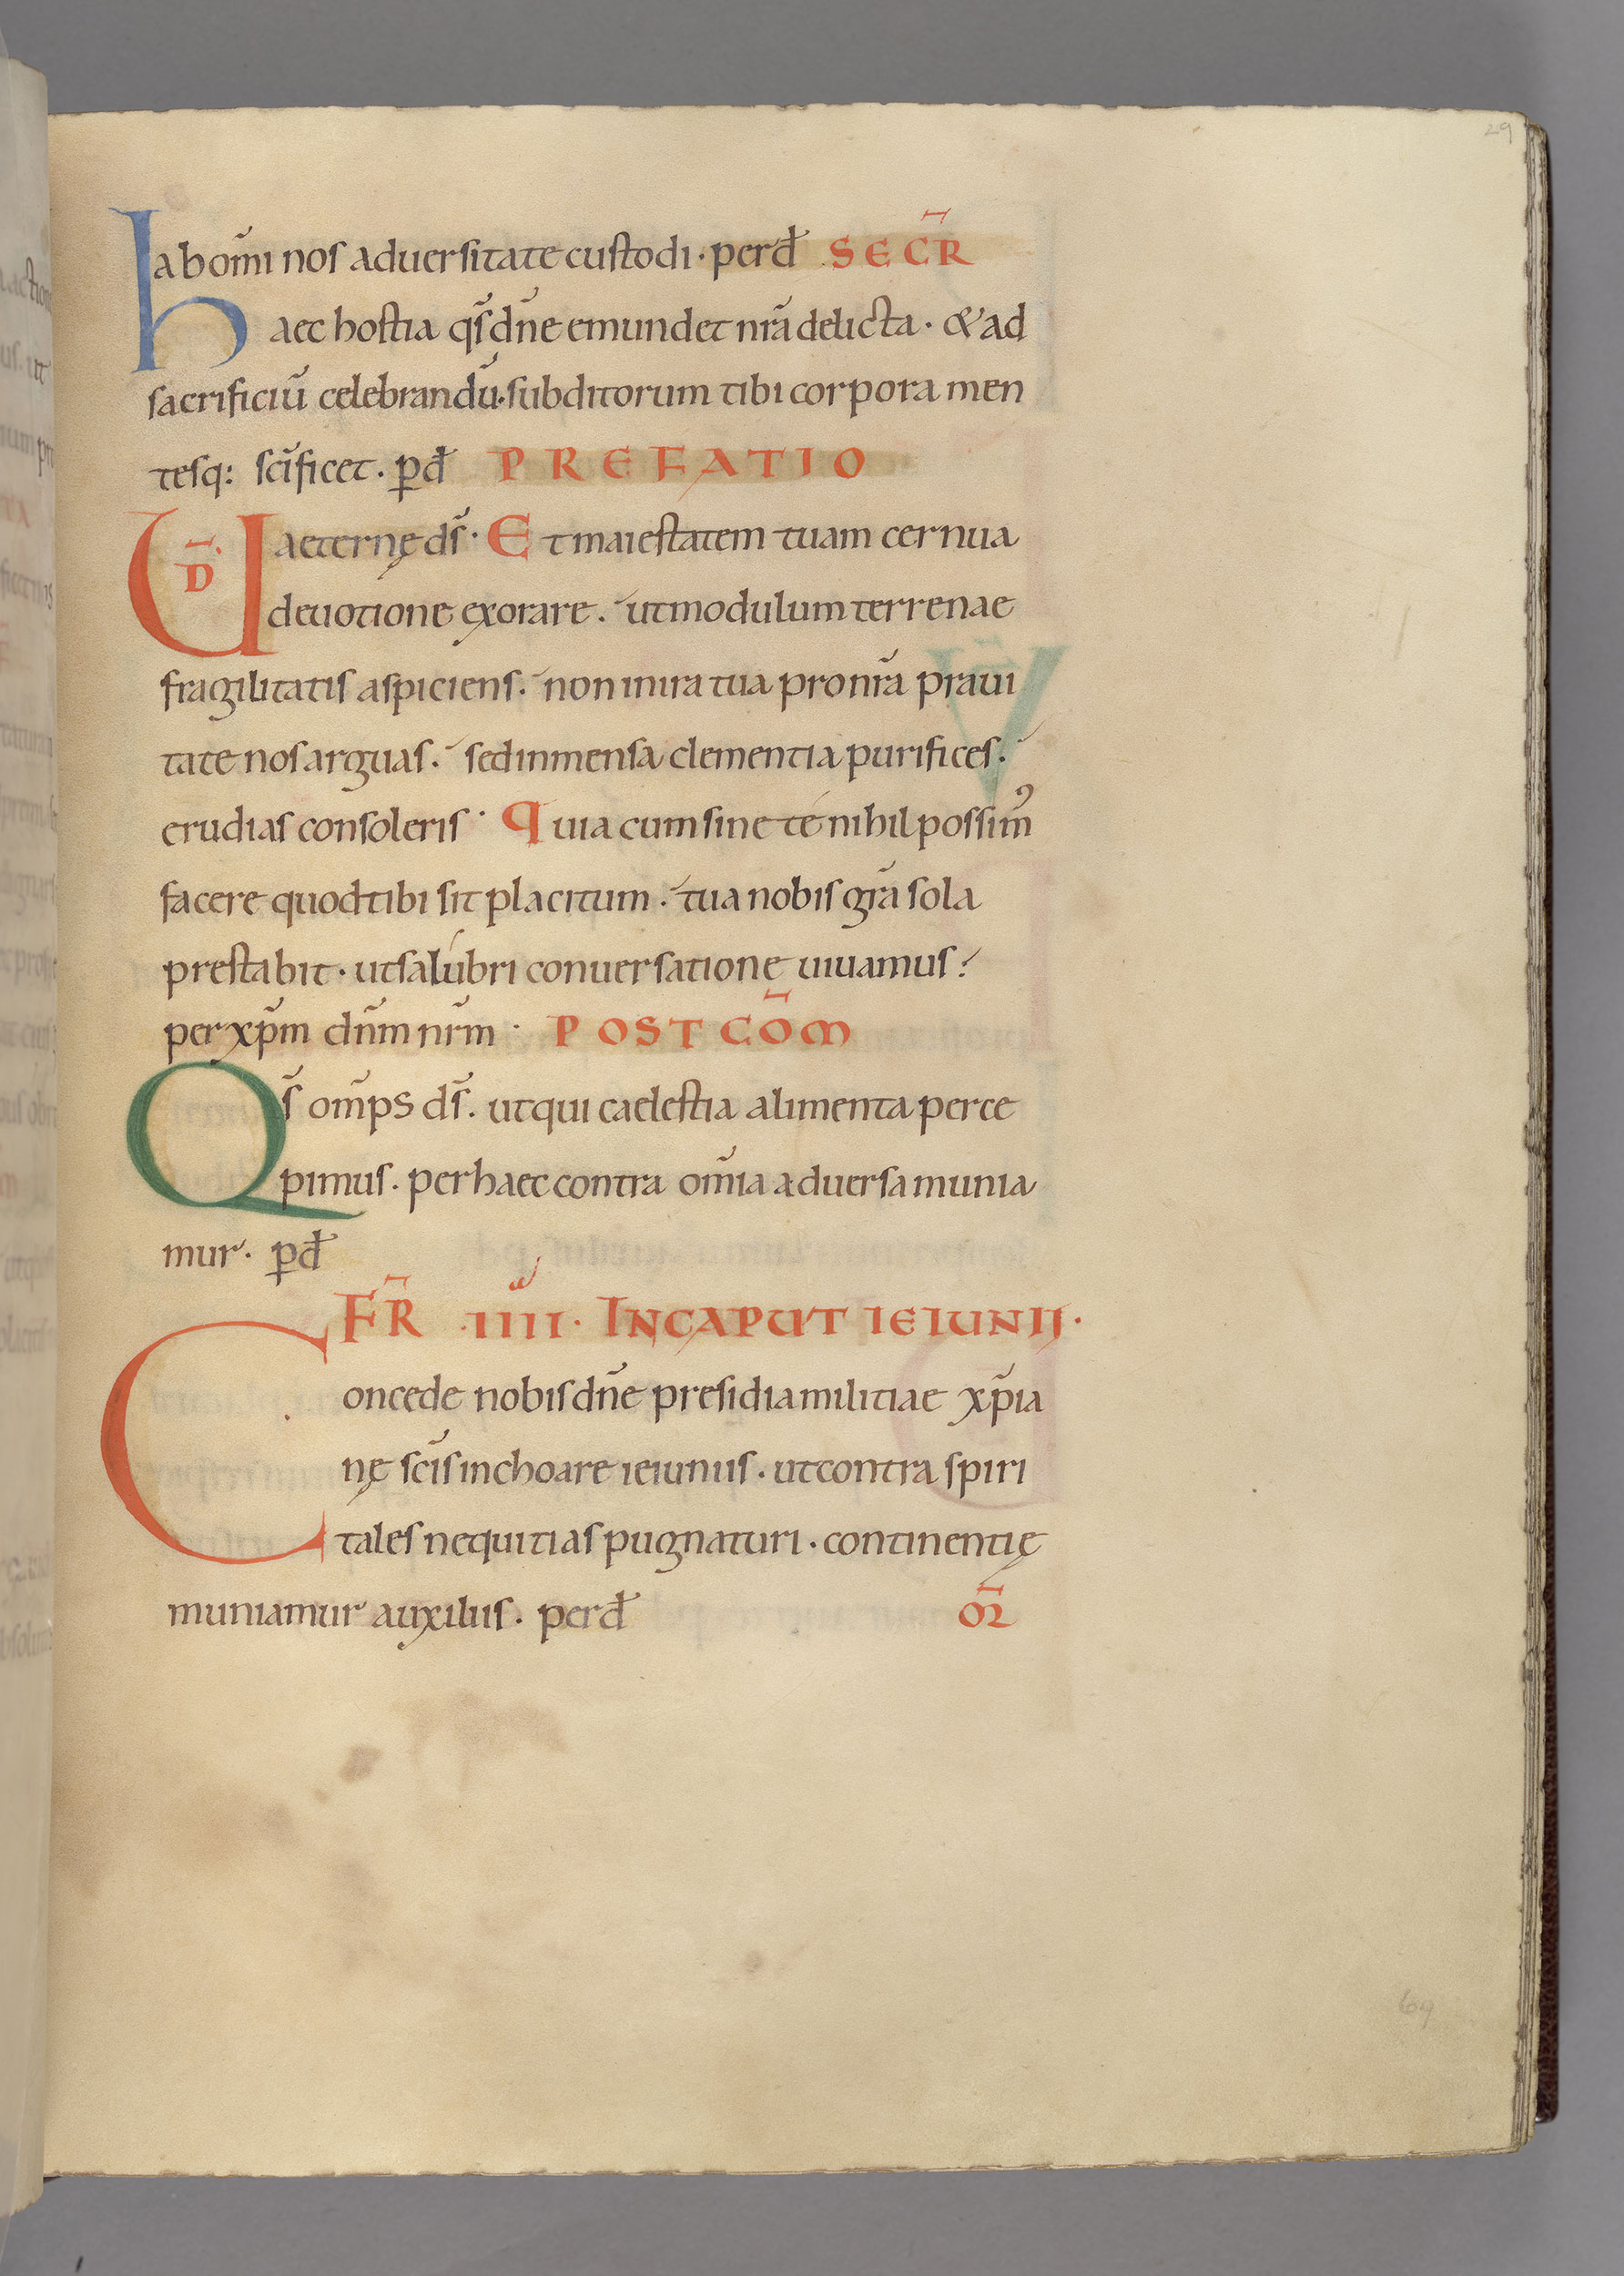 29
ab om̄i nos aduersitate custodi · perd̄ SECR̄
Haec hostia qs̄ dn̄e emundet nr̄a delicta · & ad
sacrificiū celebrandū · subditorum tibi corpora men
tesq: sc̄ificet · p̄d̄ PREFATIO
UD̄ aeternę ds̄ · Et maiestatem tuam cernua
deuotione exorare · ut modulum terrenae
fragilitatis aspiciens · non in ira tua pro nr̄a praui
tate nos arguas · sed inmensa clementia purifices ·
erudias consoleris · Quia cum sine te nihil possim᾿
facere quod tibi sit placitum · tua nobis gr̄a sola
prestabit · ut salubri conuersationę uiuamus ·
per xp̄m dn̄m nr̄m · POST COM̄
Qs̄ om̄ps ds̄ · ut qui caelestia alimenta perce
pimus · per haec contra om̄ia aduersa munia
mur · p̄d̄
FR̄ · IIII · IN CAPUT IEIUNII ·
Concede nobis dn̄e presidia militiae xp̄ia
nę sc̄is inchoare ieiuniis · ut contra spiri
tales nequitias pugnaturi · continentię
muniamur auxiliis · perd̄ OR̄